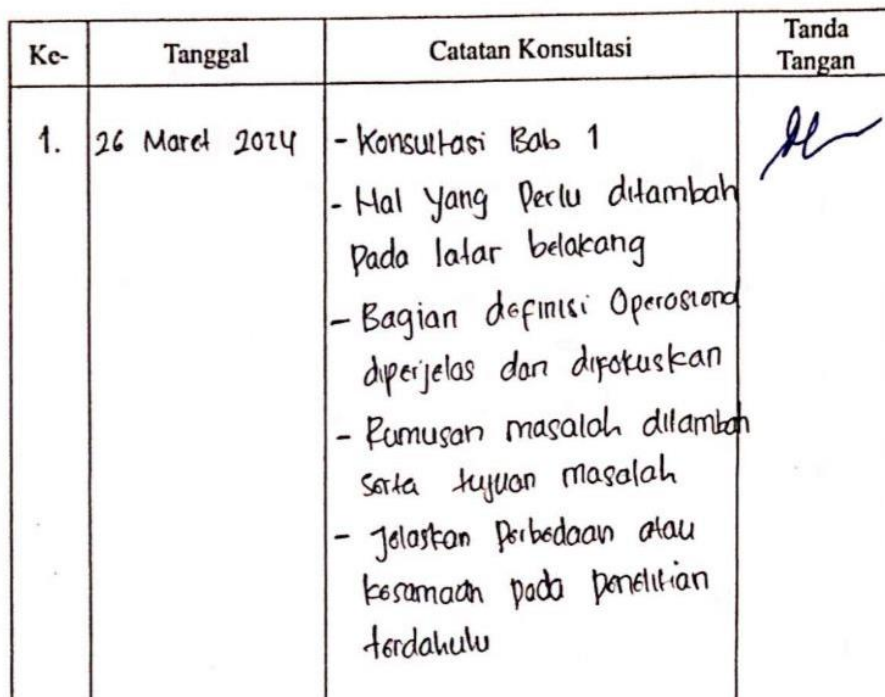 Ke- Tanggal Catatan Konsultasi Tanda Tangan
1. 26 Maret 2024 - Konsultasi Bab 1
- Hal Yang Perlu ditambah
Pada latar belakang
- Bagian definisi Operasional
diperjelas dan difokuskan
- Rumusan masalah ditambah
serta tujuan masalah
- Jelaskan Perbedaan atau
kesamaan pada penelitian
terdahulu